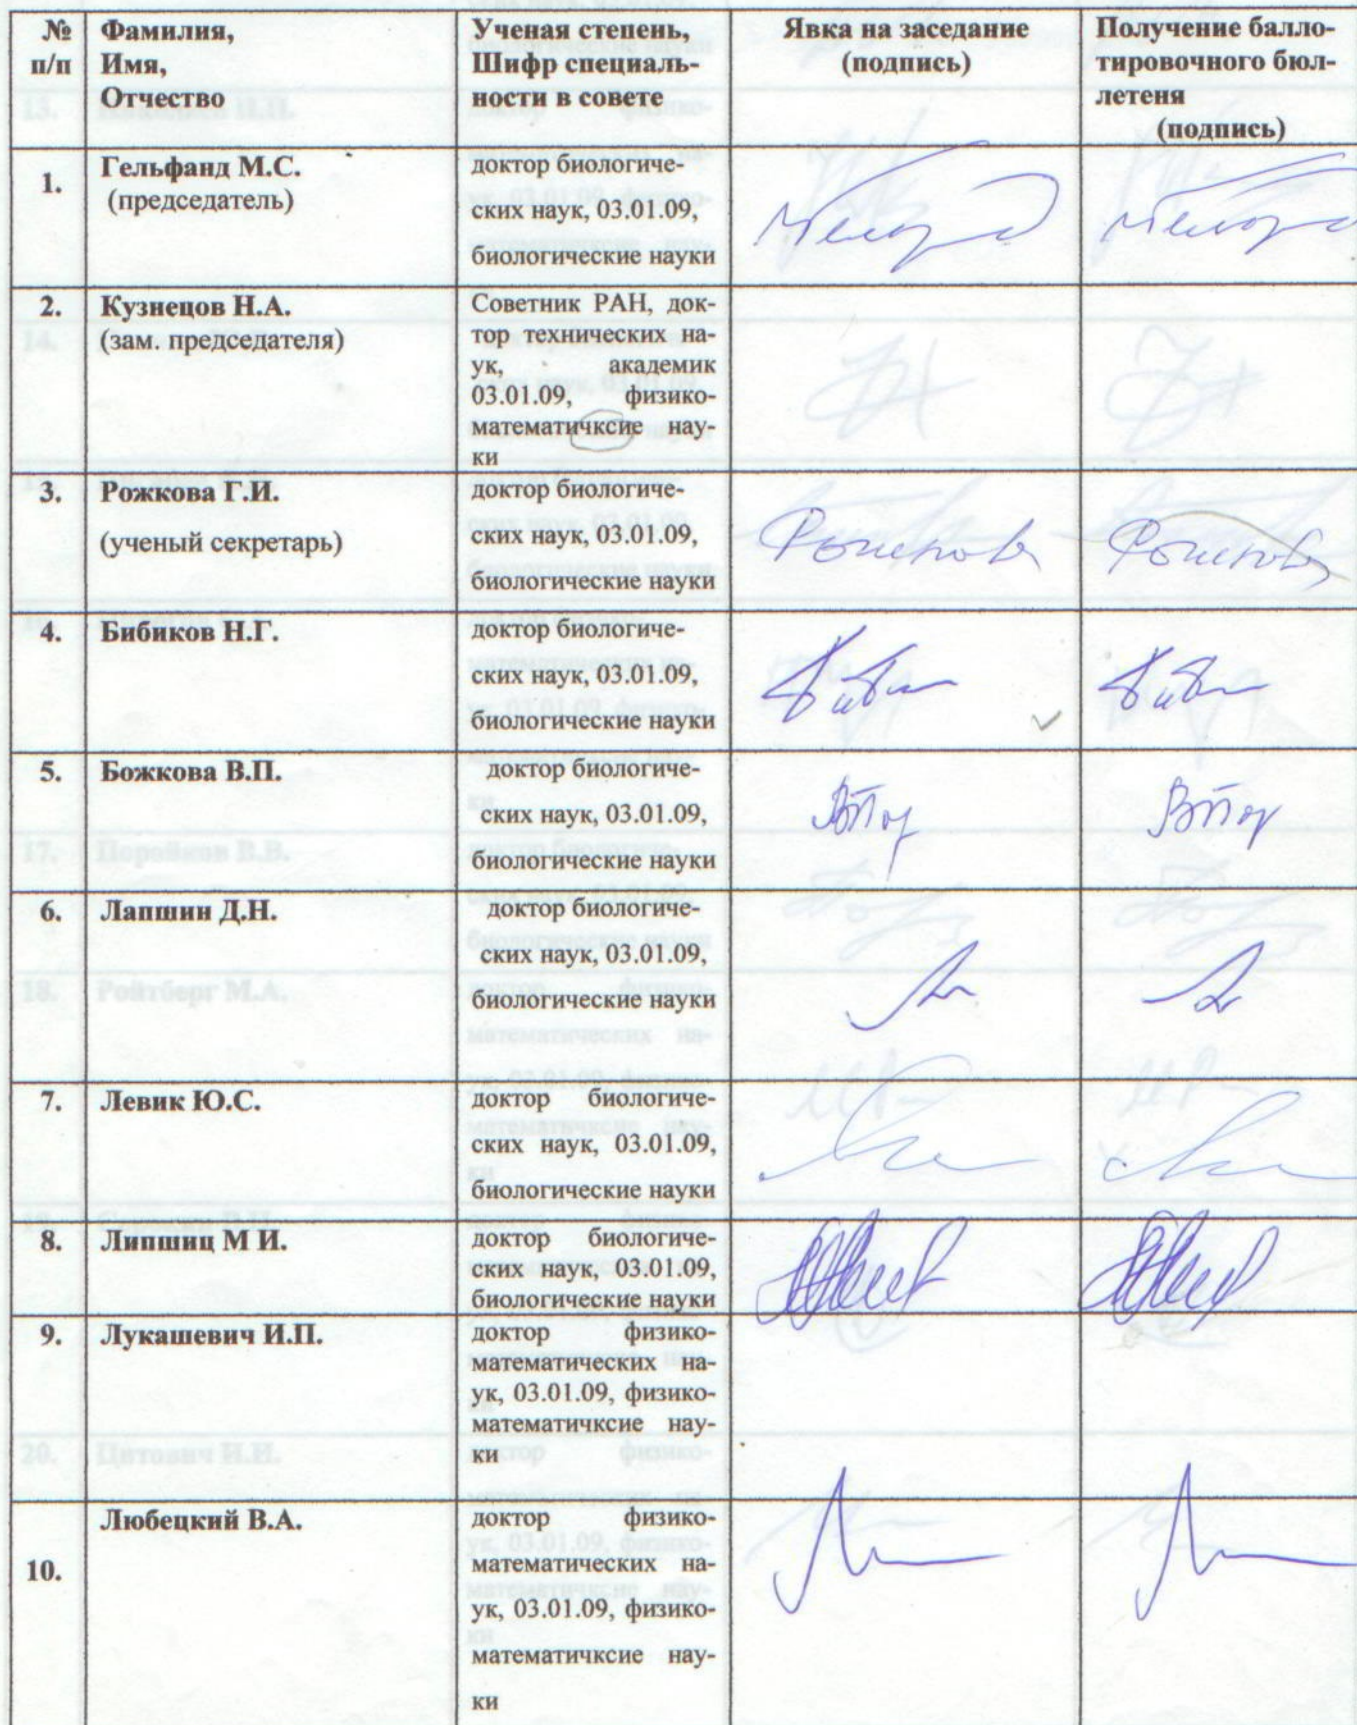 № п/п
Фамилия, Имя, Отчество
Ученая степень, Шифр специаль-ности в совете
Явка на заседание (подпись)
Получение балло-тировочного бюл-летеня (подпись)
1.
Гельфанд М.С.
(председатель)
доктор биологиче-
ских наук, 03.01.09,
биологические науки
2.
Кузнецов Н.А.
(зам. председателя)
Советник РАН, док-
тор технических на-
ук, академик
03.01.09, физико-
математичксие нау-
ки
3.
Рожкова Г.И.
(ученый секретарь)
доктор биологиче-
ских наук, 03.01.09,
биологические науки
4.
Бибиков Н.Г.
доктор биологиче-
ских наук, 03.01.09,
биологические науки
5.
Божкова В.П.
доктор биологиче-
ских наук, 03.01.09,
биологические науки
6.
Лапшин Д.Н.
доктор биологиче-
ских наук, 03.01.09,
биологические науки
7.
Левик Ю.С.
доктор биологиче-
ских наук, 03.01.09,
биологические науки
8.
Липшиц М И.
доктор биологиче-
ских наук, 03.01.09,
биологические науки
9.
Лукашевич И.П.
доктор физико-
математических на-
ук, 03.01.09, физико-
математичксие нау-
ки
10.
Любецкий В.А.
доктор физико-
математических на-
ук, 03.01.09, физико-
математичксие нау-
ки